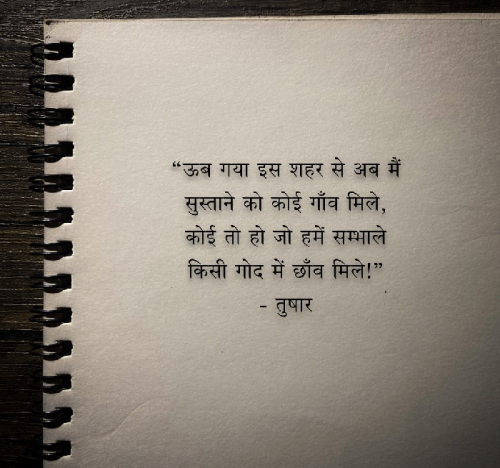 “ऊब गया इस शहर से अब मैं
सुस्ताने को कोई गाँव मिले,
कोई तो हो जो हमें सम्भाले
किसी गोद में छाँव मिले!”
- तुषार